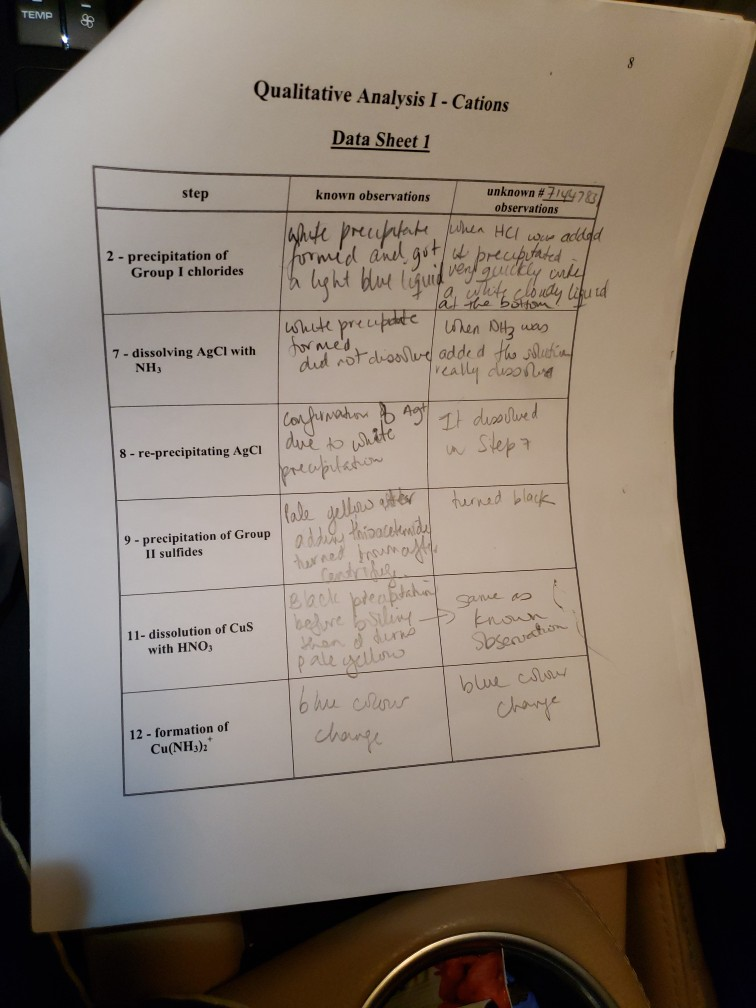 TEMP
8
Qualitative Analysis I - Cations
Data Sheet 1
step
known observations
unknown # 7144783
observations
2 - precipitation of
Group I chlorides
white precipitate
formed and got
a light blue liquid
when HCl was added
it precipitated
very quickly
a white cloudy liquid
at the bottom
7 - dissolving AgCl with
NH3
white precipitate
formed,
did not dissolve
When NH3 was
added the solution
really dissolve
8 - re-precipitating AgCl
confirmation of Ag+
due to white
precipitation
It dissolved
in Step 7
9 - precipitation of Group
II sulfides
Pale yellow after
adding thioacetemide
turned brown after
centrifuge
turned black
11- dissolution of CuS
with HNO3
Black precipitation
before boiling →
then it turns
pale yellow
same as
known
observation
12 - formation of
Cu(NH3)2+
blue colour
change
blue colour
change